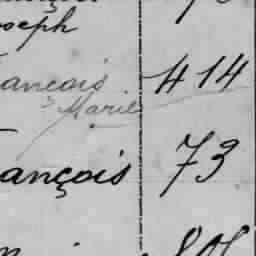 oseph
ancois 414
Marie
ançois 73